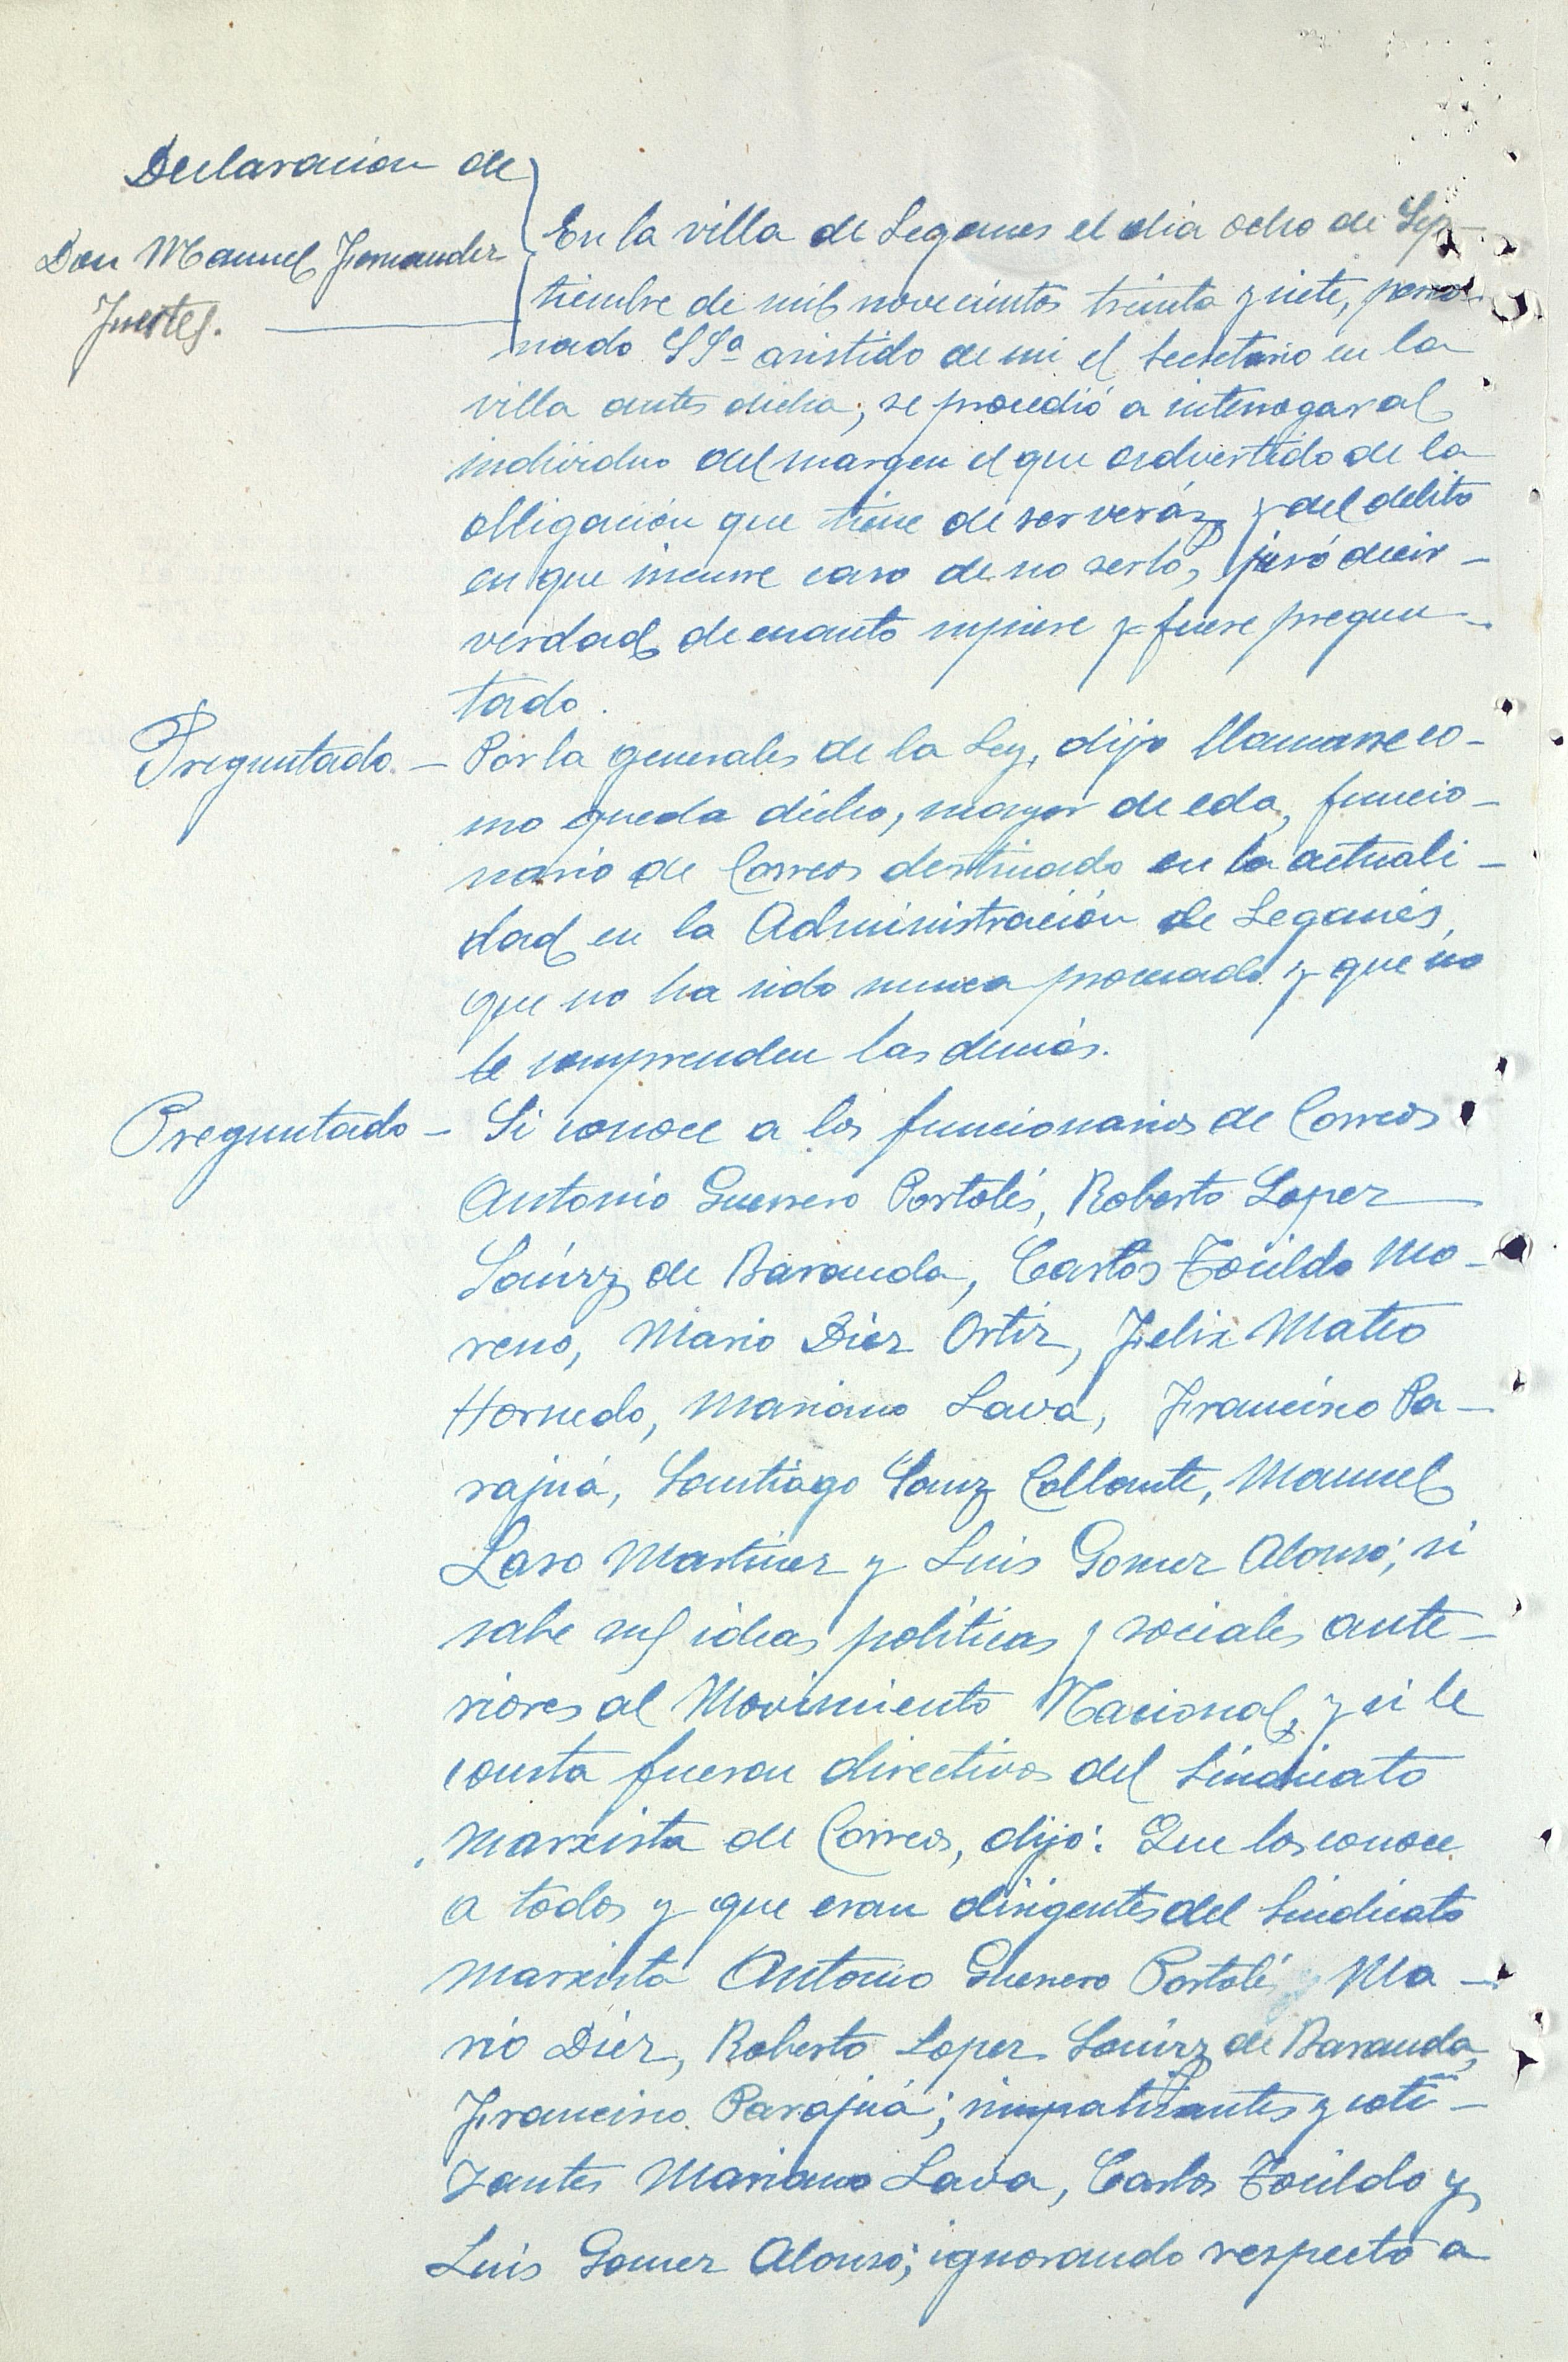 Declaración de
Don Manuel Fernandez
Fuertes.
En la villa de Leganes el dia ocho de Sep-
tiembre de mil novecientos treinta y siete, perso-
nado SSª asistido de mi el Secretario en la
villa antes dicha, se procedió a interrogar al
individuo del margen el que advertido de la
obligación que tiene de ser veráz y del delito
en que incurre caso de no serlo, juró decir
verdad de cuanto supiere y fuere pregun-
tado.
Preguntado - Por la generales de la Ley, dijo llamarse co-
mo queda dicho, mayor de eda, funcio-
nario de Correos destinado en la actuali-
dad en la Administración de Leganés,
que no ha sido nunca procesado y que no
le comprenden las demás.
Preguntado - Si conoce a los funcionarios de Correos
Antonio Guerrero Portolés, Roberto Lopez
Sáinz de Baranda, Carlos Toúldo Mo-
reno, Mario Diez Ortiz, Felix Mateo
Hornedo, Mariano Lava, Francisco Pa-
rajuá, Santiago Sanz Collante, Manuel
Laso Martinez y Luis Gomez Alonso; si
sabe sus ideas politicas y sociales ante-
riores al Movimiento Nacional, y si le
consta fueran directivos del Sindicato
Marxista de Correos, dijo: Que los conoce
a todos y que eran dirigentes del Sindicato
marxista Antonio Guerrero Portolés y Ma-
rio Diez, Roberto Lopez Sáinz de Baranda,
Francisco Parajuá; simpatizantes y coti-
zantes Mariano Lava, Carlos Toúldo y
Luis Gomez Alonso; ignorando respecto a